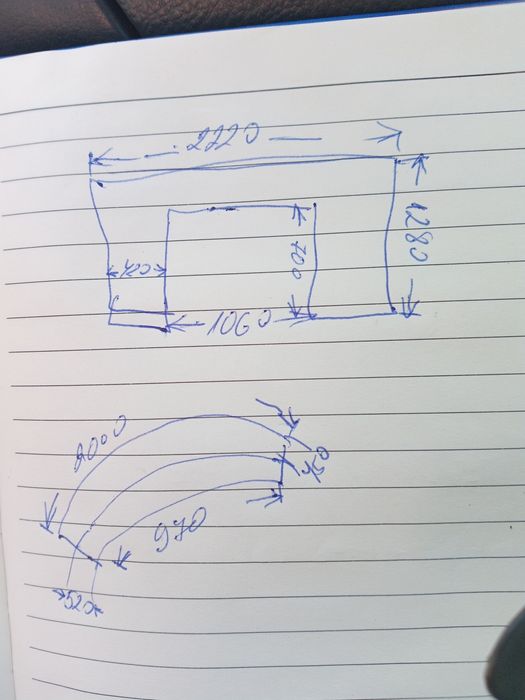 2220
1280
400
700
1060
2000
970
520